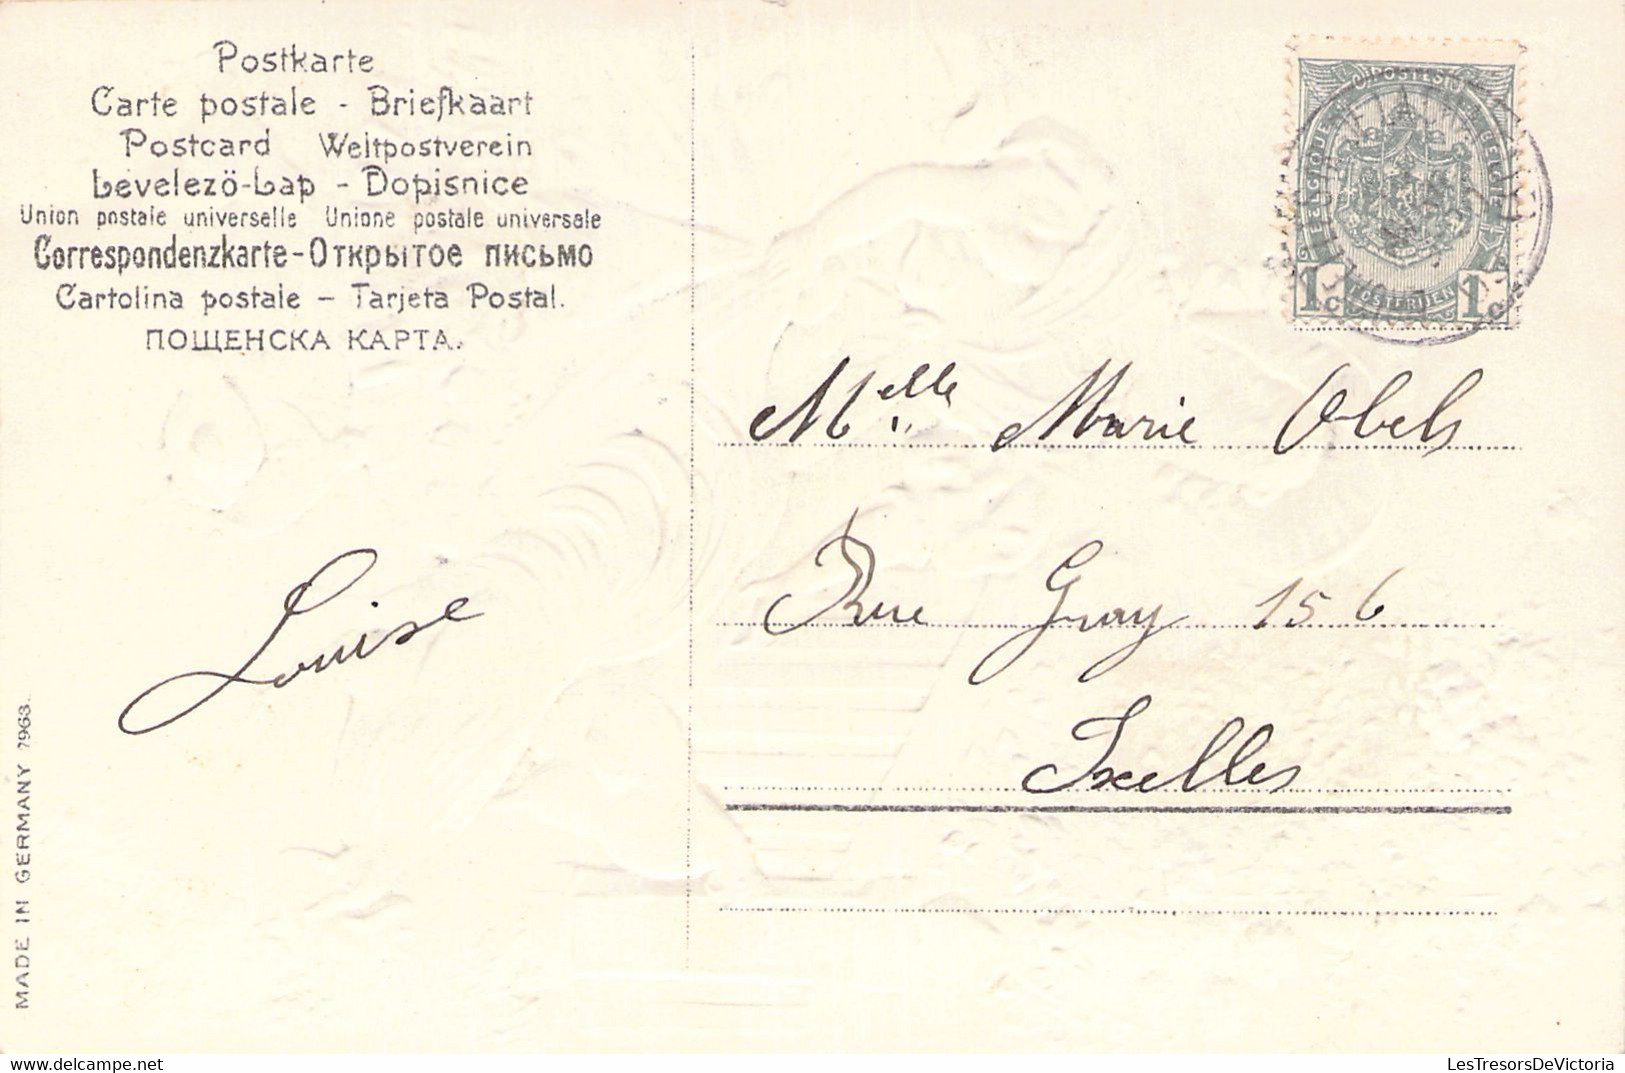 Postkarte
Carte postale - Briefkaart
Postcard Weltpostverein
Levelező-Lap - Dopisnice
Union postale universelle Unione postale universale
Correspondenzkarte-Открытое письмо
Cartolina postale - Tarjeta Postal.
ПОЩЕНСКА КАРТА.
POSTES
BELGIQUE
BELGIE
1c POSTERIJEN 1c
Melle Marie Obels
Rue Gray 156
Ixelles
Louise
MADE IN GERMANY 7963.
LesTresorsDeVictoria